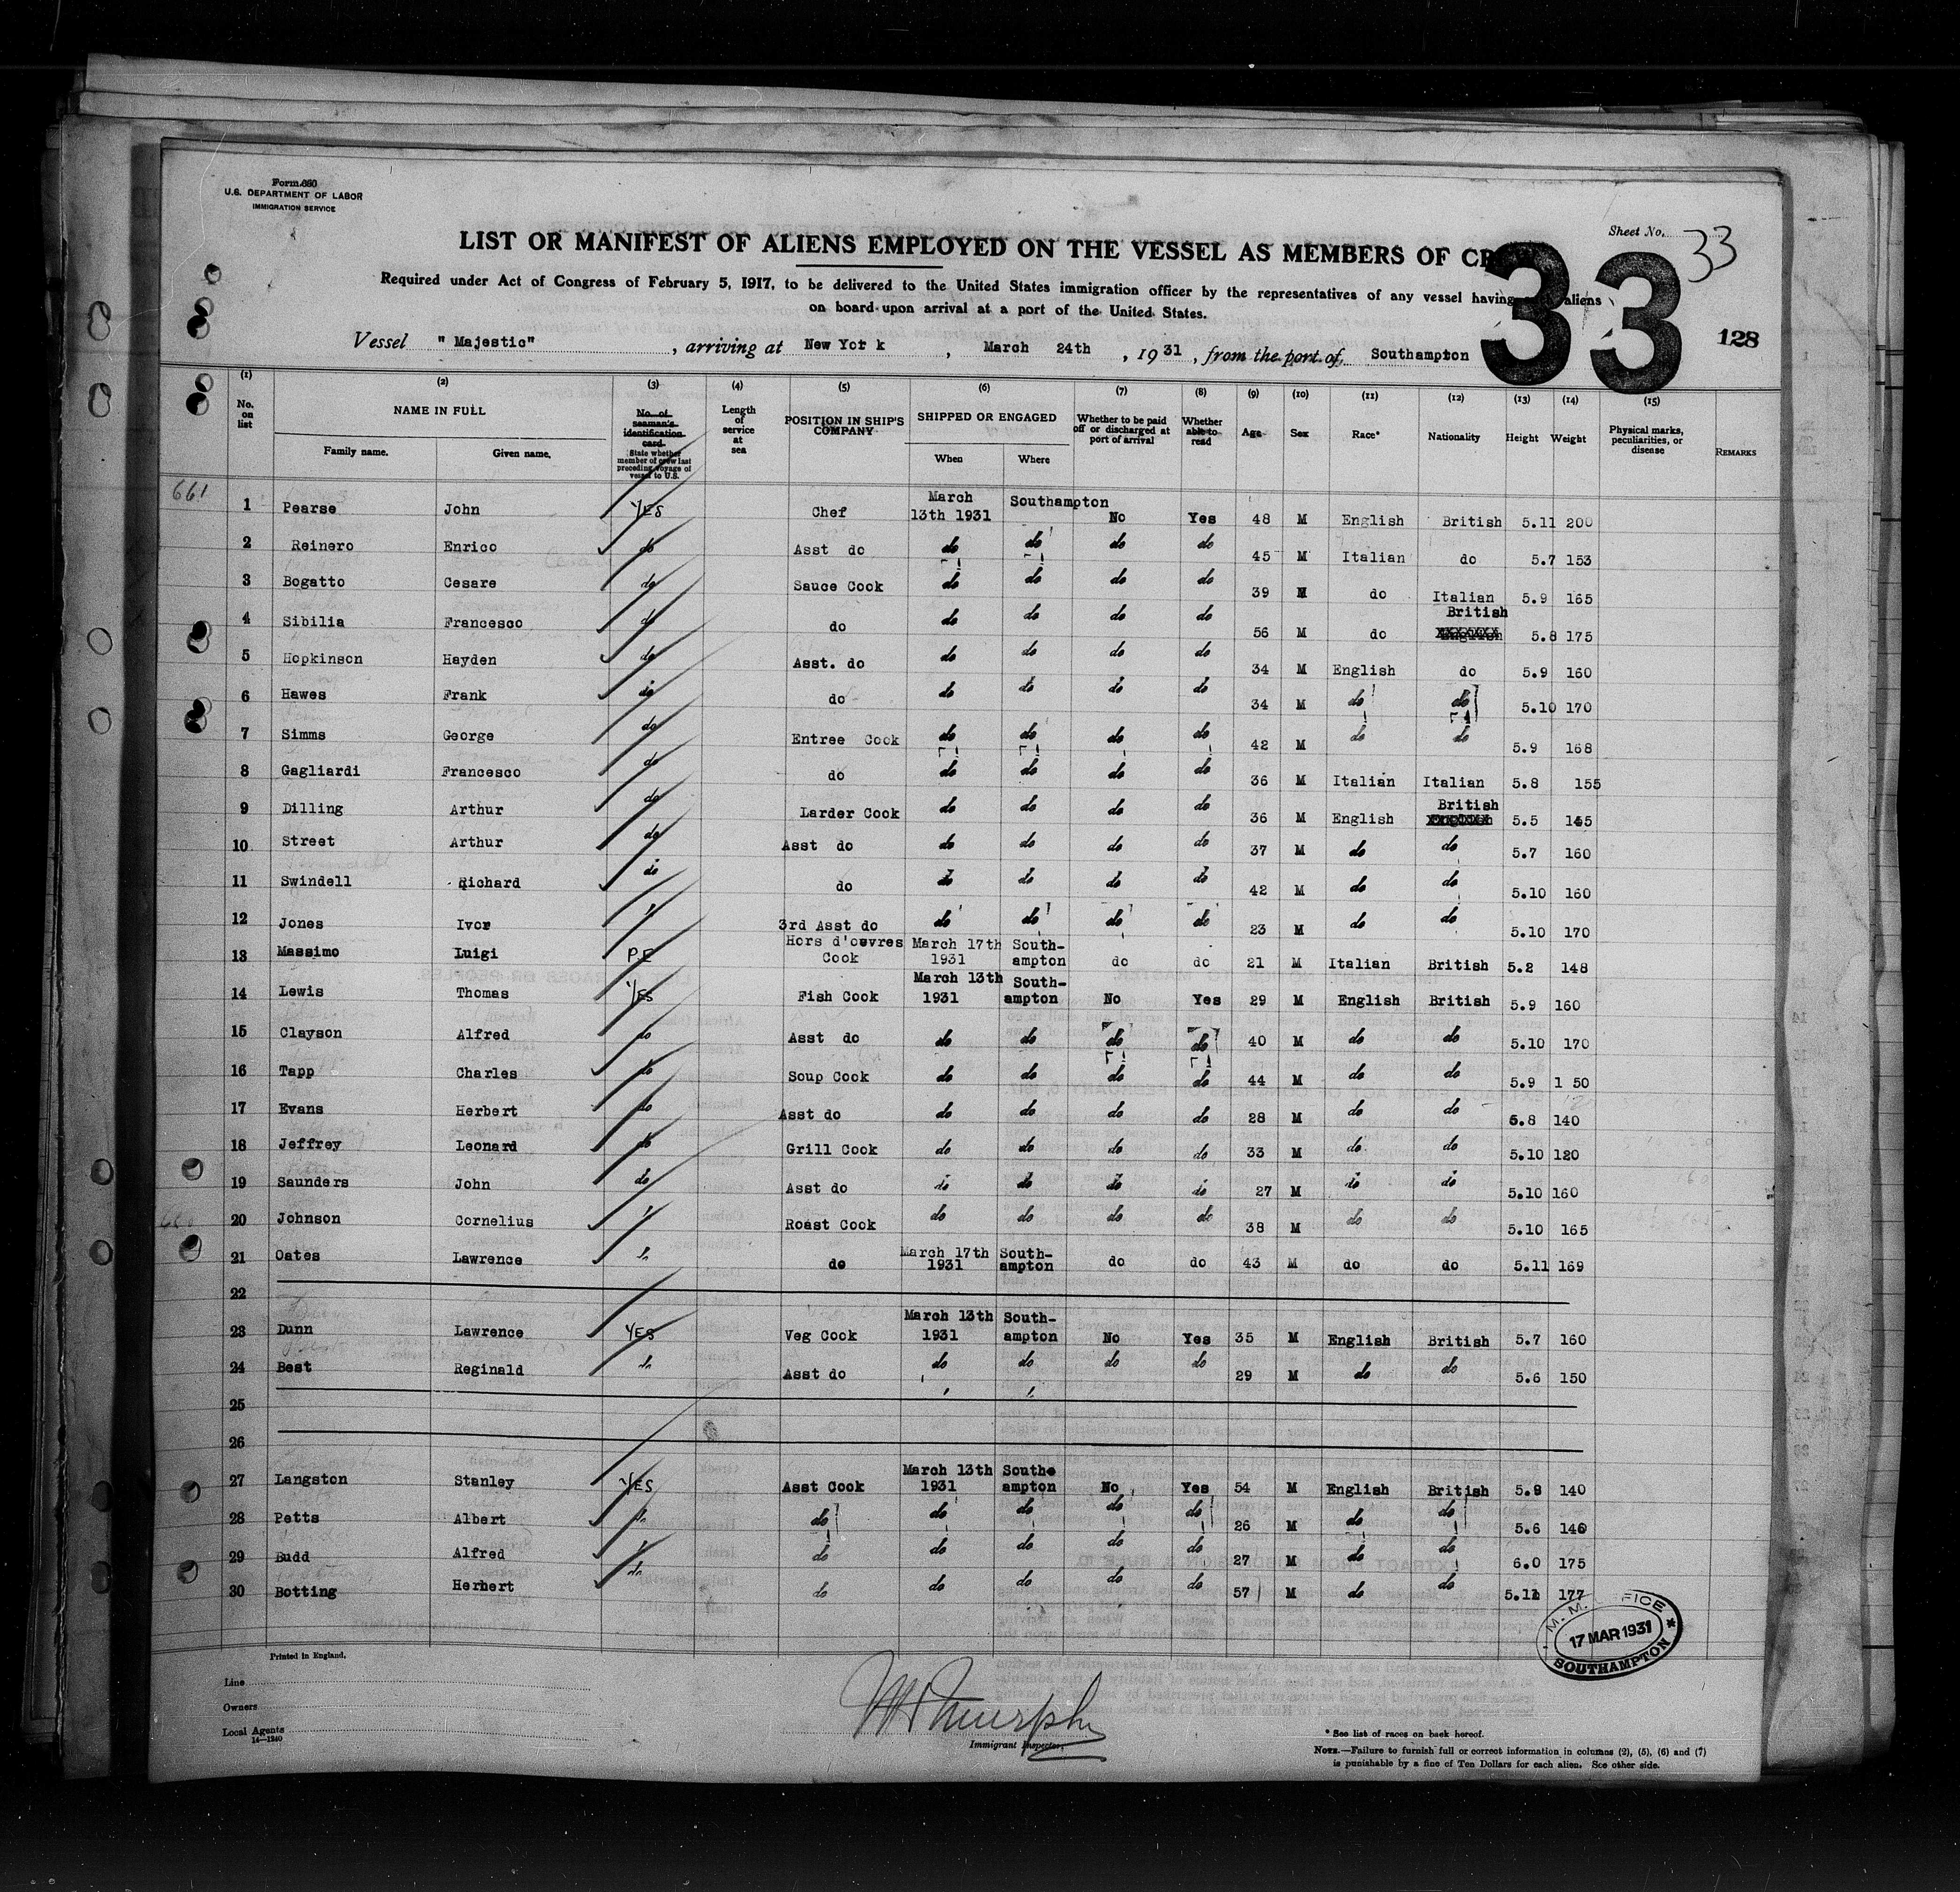 Form 680
U.S. DEPARTMENT OF LABOR
IMMIGRATION SERVICE
Sheet No. 33
LIST OR MANIFEST OF ALIENS EMPLOYED ON THE VESSEL AS MEMBERS OF CREW
33
Required under Act of Congress of February 5, 1917, to be delivered to the United States immigration officer by the representatives of any vessel having such aliens
on board upon arrival at a port of the United States.
128
Vessel "Majestic", arriving at New York, March 24th, 1931, from the port of Southampton
(1) (2) (3) (4) (5) (6) (7) (8) (9) (10) (11) (12) (13) (14) (15)
No. on list
NAME IN FULL
Family name. Given name.
No. of seaman's identification card
State whether member of crew last preceding voyage of vessel to U.S.
Length of service at sea
POSITION IN SHIP'S COMPANY
SHIPPED OR ENGAGED
When Where
Whether to be paid off or discharged at port of arrival
Whether able to read
Age Sex Race* Nationality Height Weight
Physical marks, peculiarities, or disease
REMARKS
661
1 Pearse John YES Chef March 13th 1931 Southampton No Yes 48 M English British 5.11 200
2 Reinero Enrico do Asst do do do do do 45 M Italian do 5.7 153
3 Bogatto Cesare do Sauce Cook do do do do 39 M do Italian 5.9 165
4 Sibilia Francesco do do do do do do 56 M do British 5.8 175
5 Hopkinson Hayden do Asst. do do do do do 34 M English do 5.9 160
6 Hawes Frank do do do do do do 34 M do do 5.10 170
7 Simms George do Entree Cook do do do do 42 M do do 5.9 168
8 Gagliardi Francesco do do do do do do 36 M Italian Italian 5.8 155
9 Dilling Arthur do Larder Cook do do do do 36 M English British 5.5 145
10 Street Arthur do Asst do do do do do 37 M do do 5.7 160
11 Swindell Richard do do do do do do 42 M do do 5.10 160
12 Jones Ivor 3rd Asst do do do do do 23 M do do 5.10 170
13 Massimo Luigi P.E Hors d'oevres Cook March 17th 1931 South-ampton do do 21 M Italian British 5.2 148
14 Lewis Thomas YES Fish Cook March 13th 1931 South-ampton No Yes 29 M English British 5.9 160
15 Clayson Alfred do Asst do do do do do 40 M do do 5.10 170
16 Tapp Charles do Soup Cook do do do do 44 M do do 5.9 1 50
17 Evans Herbert do Asst do do do do do 28 M do do 5.8 140
18 Jeffrey Leonard do Grill Cook do do do do 33 M do do 5.10 120
19 Saunders John do Asst do do do do do 27 M do do 5.10 160
20 Johnson Cornelius Roast Cook do do do do 38 M do do 5.10 165
21 Oates Lawrence do do March 17th 1931 South-ampton do do 43 M do do 5.11 169
22
23 Dunn Lawrence YES Veg Cook March 13th 1931 South-ampton No Yes 35 M English British 5.7 160
24 Best Reginald do Asst do do do do do 29 M do do 5.6 150
25
26
27 Langston Stanley YES Asst Cook March 13th 1931 Southe ampton No Yes 54 M English British 5.8 140
28 Petts Albert do do do do do do 26 M do do 5.6 140
29 Budd Alfred do do do do do 27 M do do 6.0 175
30 Botting Herbert do do do do do do 57 M do do 5.11 177
I. M. M. OFFICE
17 MAR 1931
SOUTHAMPTON
Printed in England.
Line
Owners
Local Agents
14—1240
Immigrant Inspector.
* See list of races on back hereof.
NOTE.—Failure to furnish full or correct information in columns (2), (5), (6) and (7)
is punishable by a fine of Ten Dollars for each alien. See other side.